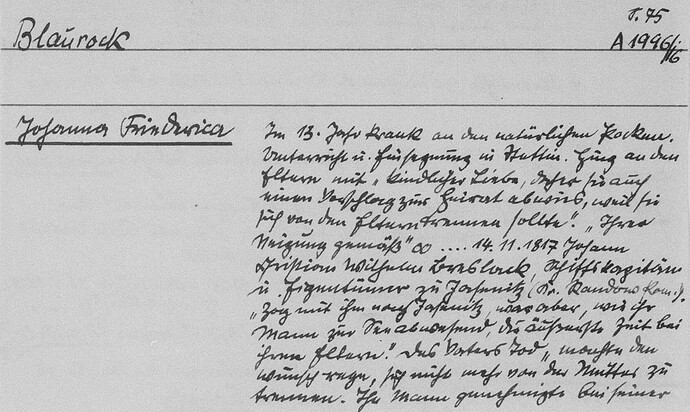 S. 75
Blaurock
A 1996/i/16
Johanna Friederica
Im 13. Jahr krank an den natürlichen Pocken.
Unterricht u. Einsegnung in Stettin. Hing an den
Eltern mit „kindlicher Liebe, daher sie auch
einen Vorschlag zur Heirat abwies, weil sie
sich von den Eltern trennen sollte". „Ihrer
Neigung gemäß" ∞ .... 14.11.1817 Johann
Christian Wilhelm Breslack, Schiffskapitän
u Eigentümer zu Jasenitz (Kr. Randow Pom.).
„zog mit ihm nach Jasenitz, war aber, wie ihr
Mann zur See abwesend, die äußerste Zeit bei
ihren Eltern". Des Vaters Tod „machte den
Wunsch rege, sich nicht mehr von der Mutter zu
trennen. Ihr Mann genehmigte bei seiner